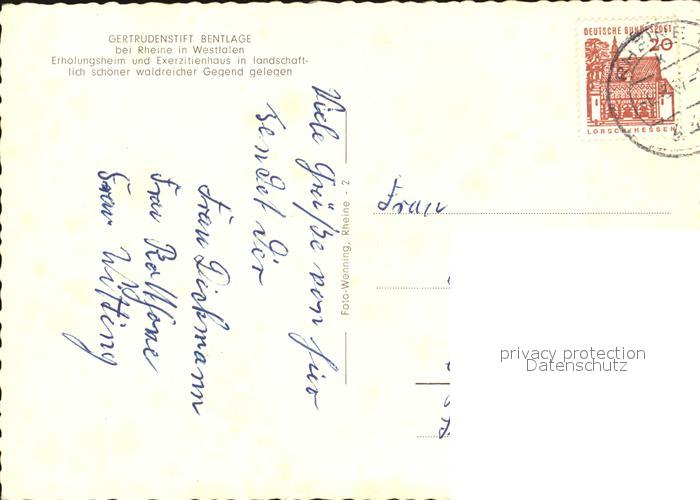 GERTRUDENSTIFT BENTLAGE
bei Rheine in Westfalen
Erholungsheim und Exerzitienhaus in landschaft-
lich schöner waldreicher Gegend gelegen
Viele Grüße von hier
sendet Dir
Frau Dickmann
Frau
Frau Witting
Foto-Wenning, Rheine - 2
DEUTSCHE BUNDESPOST
20
LORSCH/HESSEN
Frau
privacy protection
Datenschutz